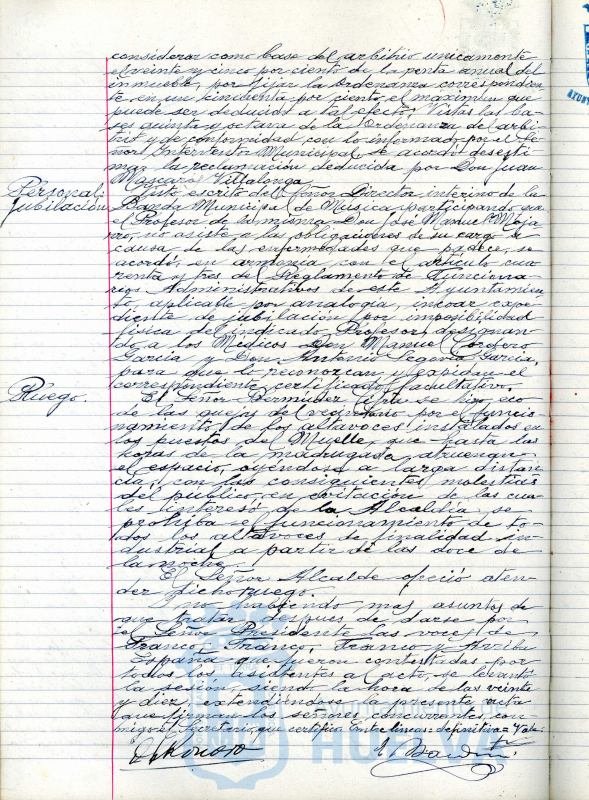 considerar como base del arbitrio unicamente
el veinte y cinco por ciento de la renta anual del
inmueble, por fijar la Ordenanza correspondien-
te en un cincuenta por ciento el maximun que
puede ser deducido a tal efecto; Vistas las ba-
ses quinta y octava de la Ordenanza del arbi-
trio y de conformidad con lo informado por el Se-
ñor Interventor Municipal se acordó desesti-
mar la reclamación deducida por Don Juan
Mascarós Villalonga.
Personal,
jubilación
Visto escrito del Señor Director interino de la
Banda Municipal de Música participando que
el Profesor de la misma Don José Manuel
no asiste a las obligaciones de su cargo a
causa de las enfermedades que padece, se
acordó, en armonia con el artículo cua-
renta y tres del Reglamento de Funciona-
rios Administrativos de este Ayuntamien-
to, aplicable por analogia, incoar expe-
diente de jubilación por imposibilidad
fisica del indicado Profesor, designan-
do a los Médicos Don Manuel
Garcia y Don Antonio Segovia Garcia,
para que lo reconozcan y expidan el
correspondiente certificado facultativo.
Ruego.
El Señor Bermúdez se hizo eco
de las quejas del vecindario por el funcio-
namiento de los altavoces instalados en
los puestos del Muelle, que hasta las
horas de la madrugada atruenan
el espacio, oyendose a larga distan-
cia, con las consiguientes molestias
del público, en evitación de las cua-
les interesó de la Alcaldía, se
prohiba el funcionamiento de to-
dos los altavoces de finalidad in-
dustrial a partir de las doce de
la noche.
El Señor Alcalde ofreció aten-
der dicho ruego.
Y no habiendo mas asuntos de
que tratar, despues de darse por
el Señor Presidente las voces de
Franco, Franco, Franco y Arriba
España que fueron contestadas por
todos los asistentes al acto, se levantó
la sesión, siendo la hora de las veinte
y diez, extendiendose la presente acta
que firman los señores concurrentes con-
migo el Secretario, que certifico. Entre lineas = definitiva = Vale.
Ayuntamiento de
HUELVA